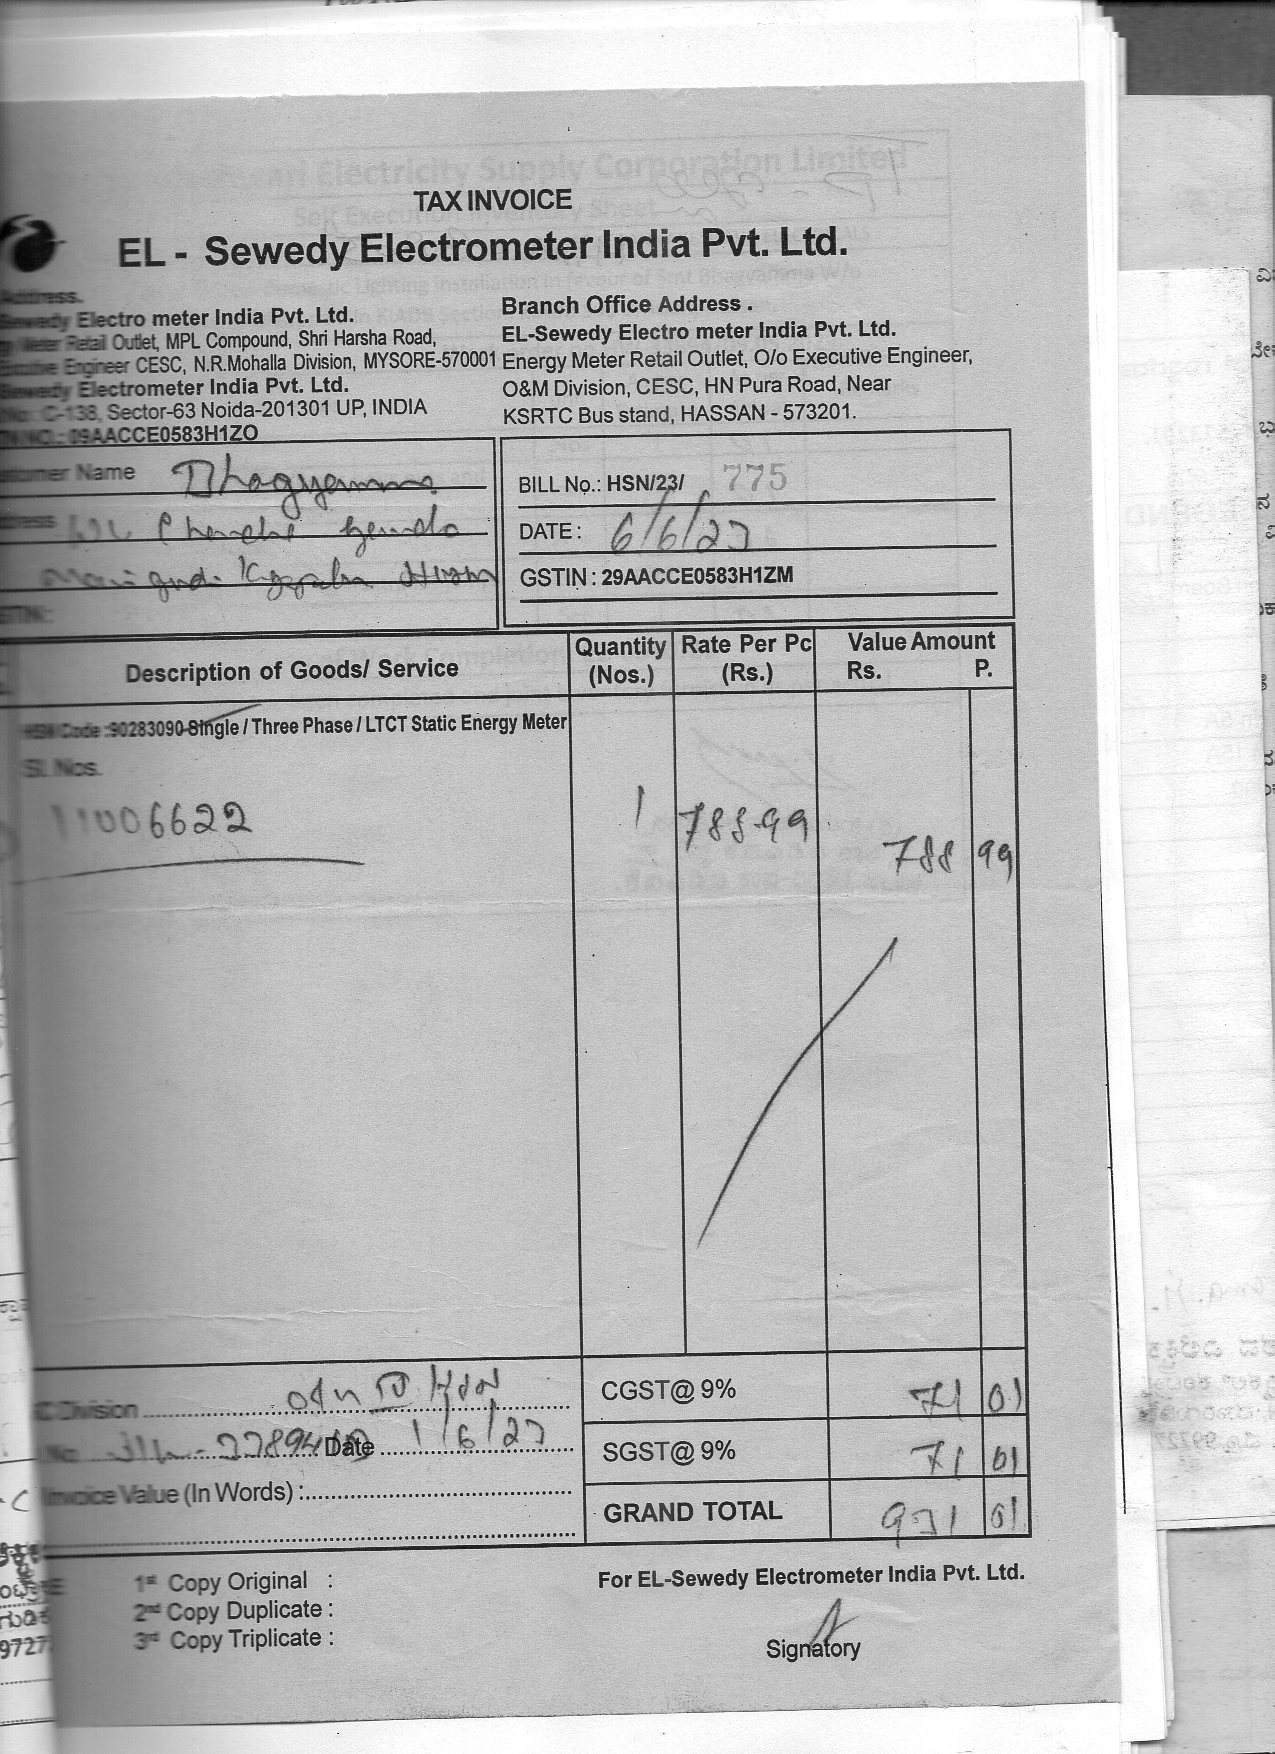 TAX INVOICE
EL - Sewedy Electrometer India Pvt. Ltd.
Address.
Sewedy Electro meter India Pvt. Ltd.
Meter Retail Outlet, MPL Compound, Shri Harsha Road,
Executive Engineer CESC, N.R.Mohalla Division, MYSORE-570001
Sewedy Electrometer India Pvt. Ltd.
C-138, Sector-63 Noida-201301 UP, INDIA
09AACCE0583H1ZO
Branch Office Address .
EL-Sewedy Electro meter India Pvt. Ltd.
Energy Meter Retail Outlet, O/o Executive Engineer,
O&M Division, CESC, HN Pura Road, Near
KSRTC Bus stand, HASSAN - 573201.
Customer Name Bhagyamma
BILL No.: HSN/23/ 775
DATE : 6/6/23
GSTIN : 29AACCE0583H1ZM
Description of Goods/ Service
Quantity (Nos.)
Rate Per Pc (Rs.)
Value Amount
Rs. P.
HSN Code :90283090-Single / Three Phase / LTCT Static Energy Meter
Sl. Nos.
11006622 1 788.99 788 99
Division
CGST@ 9% 71 01
Date 1/6/23
SGST@ 9% 71 01
Invoice Value (In Words) :
GRAND TOTAL 931 01
1st Copy Original :
2nd Copy Duplicate :
3rd Copy Triplicate :
For EL-Sewedy Electrometer India Pvt. Ltd.
Signatory